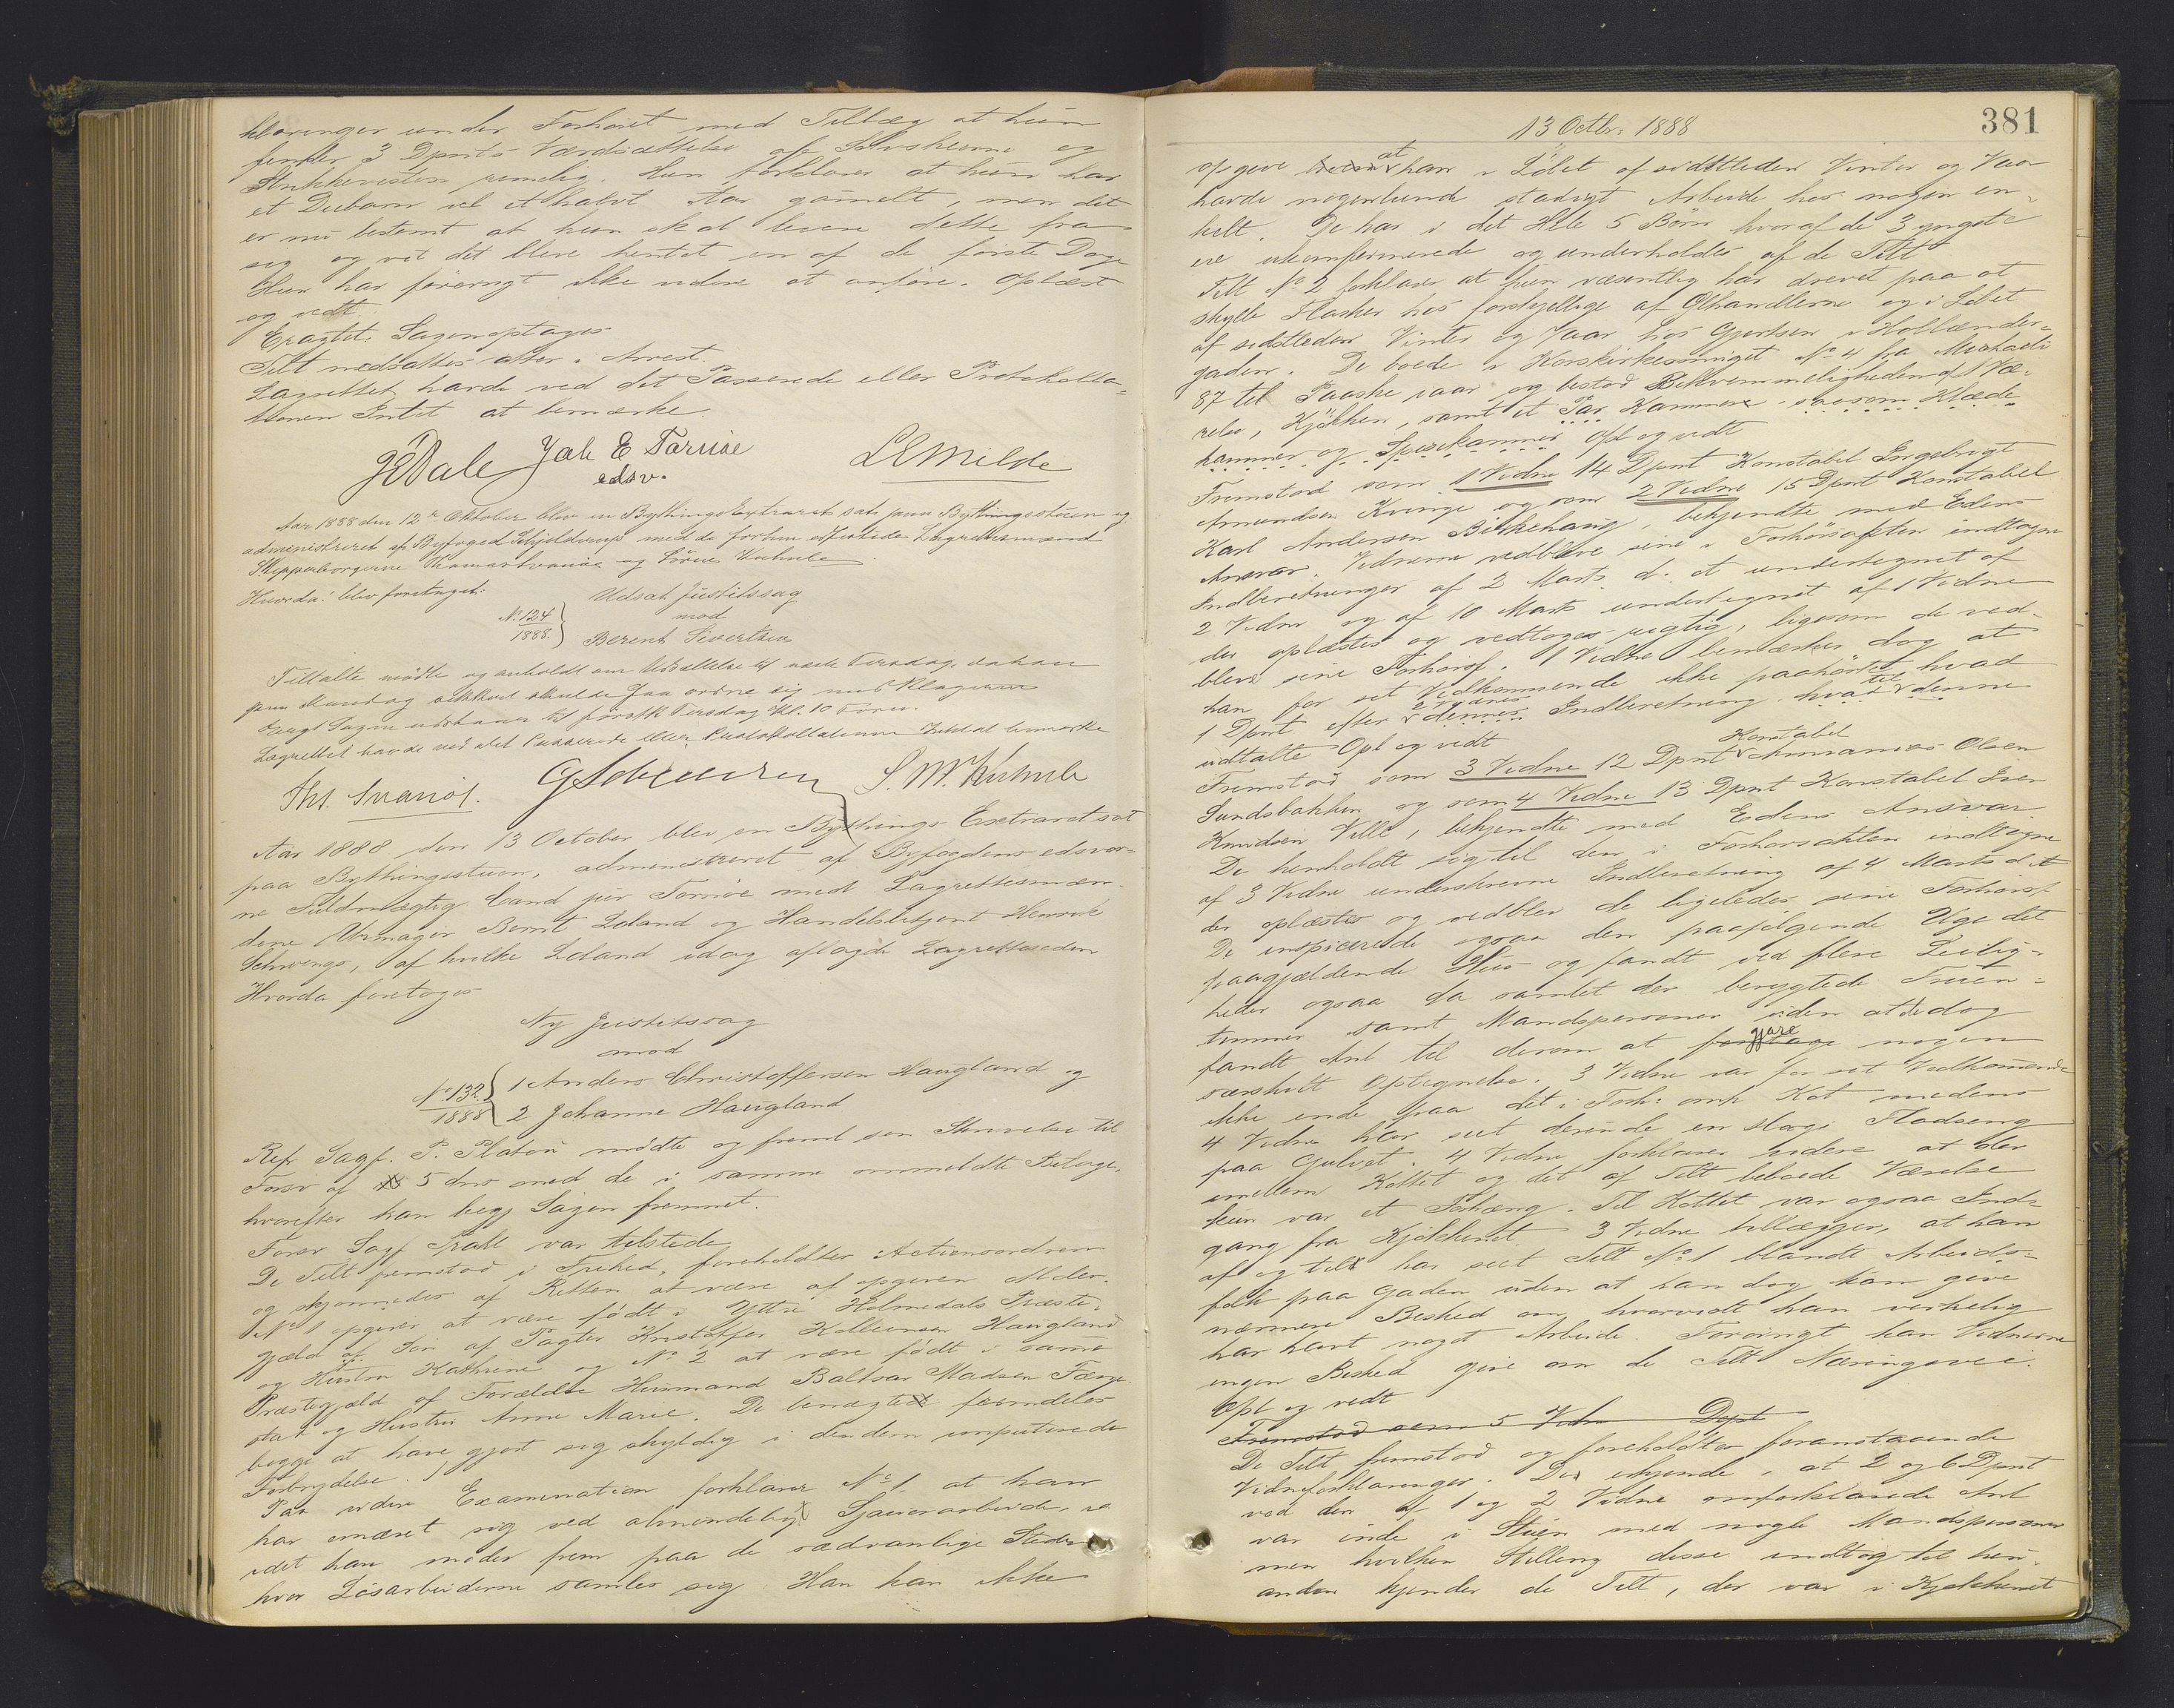 klaringer under Forhøret med Tillæg at hun
finder 3 Dpnts Værdsættelse af Silvskeerne og
Strikkevesten rimelig. Hun forklarer at hun har
et Diebarn vel et halvt Aar gammelt, men det
er nu bestemt at hun skal levere dette fra
sig og vil det blive hentet en af de første Dage
Hun har forøvrigt ikke videre at anføre. Oplæst
og vedt.
Eragtet: Sagen optages
Tilt nedsattes atter i Arrest.
Lagrettet havde ved det Passerede eller Protokolla=
tionen Intet at bemærke.
Jak E Tornøe
edsv.
GDale
LEMilde
Aar 1888 den 12te Oktober blev en Bythings Extraret sat paa Bythingsstuen og
administreret af Byfoged Schjelderup med de forhen edfæstede Lagrettesmænd
Skipperborgerne Thomas Svanøe og Sørens Kuhnle.
Hvorda! blev foretaget:
Udsat Justitssag
mod
Berent Sivertsen
No. 124
1888.
Tiltalte mødte og anholdt om Udsættelse til næste Tirsdag, da han
paa Mandag sikkert skulde faa ordne sig med Klageren
Eragt Sagen udstaaer til førstk Tirsdag Kl. 10 Form.
Lagrettet havde ved det Passerede eller Protokollationen Intet at bemærke
Ths. Svanøe.
S. M. Kuhnle
Aar 1888 den 13 October blev en Bythings Extraret sat
paa Bythingsstuen, administreret af Byfogdens edsvor=
ne Fuldmægtig Cand jur Tornøe med Lagrettesmæn=
dene Urmager Bernt Leland og Handelsbetjent Henrik
Schwenge, af hvilke Leland idag aflagde Lagretteseden
Hvorda foretoges
Ny Justitssag
mod
No. 132
1888
1 Anders Christoffersen Haugland og
2 Johanne Haugland
Refr Sagf. P. Platou mødte og freml sin Skrivelse til
Forsv af 5 dns med de i samme ommeldte Bilage,
hvorefter han begj Sagen fremmet.
Forsv Sagf Prahl var tilstede
De Tilt fremstod i Frihed, foreholdtes Actionsordren
og skjønnedes af Retten at være af opgiven Alder.
No 1 opgiver at være født i Yttre Holmedals Præste=
gjæld af Søn af Pagter Kristoffer Haugland
og Hustru Kathrine og No 2 at være født i samme
Præstegjæld af Forældre Husmand Baltsar Madsen
stad og Hustru Anne Marie. De benægtede fremdeles
begge at have gjort sig skyldig i den dem imputerede
Forbrydelse.
Paa videre Examination forklarer No 1. at han
har ernæret sig ved almindelig Sjauerarbeide, i
idet han møder frem paa de sædvanlige Steder
hvor Løsarbeiderne samler sig Han kan ikke
13 Octbr: 1888
381
opgive at han i Løbet af sidstleden Vinter og Vaar
havde nogenlunde stadigt Arbeide hos nogen en=
kelt. De har i det Hele 5 Børn hvoraf de 3 yngste
ere ukonfirmerede og underholdes af de Tilt
Tilt No 2 forklarer at hun væsentlig har drevet paa at
skylle Flasker hos forskjellige af Ølhandlerne og i Løbet
af sidstleden Vinter og Vaar hos Gjertsen i Hollænder=
gaden. De boede i Korskirkesmuget No 4 fra Michaeli
87 til Paaske iaar og bestod Bekvemmeligheden af 1 Væ=
relse, Kjøkken, samt et Par Kammere saasom Klæde
kammer og Spisekammer Opl og vedt
Fremstod som 1 Vidne 14 Dpnt Konstabel Ingebrigt
Amundsen Kvinge og som 2 Vidne 15 Dpnt Konstabel
Karl Andersen Birkehaug, bekjendte med Edens
Ansvar. Vidnerne vedblive sine i Forhørsakten indtagne
Indberetninger af 2 Marts d. A. undertegnet af
2 Vidne og af 10 Marts undertegnet af 1 Vidne
der oplæstes og vedtoges rigtig, ligesom de ved=
blev sine Forhørsf. 1 Vidne bemærker dog at
han for sit Vedkommende ikke paahørte hvad
1 Dpnt efter 2 Vidnes dennes Indberetning til denne
udtalte Opl og vedt
Fremstod som 3 Vidne 12 Dpnt Konstabel Ammanias Olsen
Sundsbakken og som 4 Vidne 13 Dpnt Konstabel Iver
Knudsen Tille, bekjendte med Edens Ansvar.
De henholdt sig til den i Forhørsakten indtagne
af 3 Vidne underskrevne Indberetning af 4 Marts d A
der oplæstes og vedblev de ligeledes sine Forhørsf
De inspicerede ogsaa den paafølgende Uge det
paagjældende Hus og fandt ved flere Leilig=
heder ogsaa da samlet der berygtede Fruen=
timmer samt Mandspersoner uden at de dog
fandt Anl til derom at gjøre nogen
særskilt Optegnelse. 3 Vidne var for sit Vedkommende
ikke inde paa det i Forh: omh Kot medens
4 Vidne har seet derinde en slags Fladseng
paa Gulvet. 4 Vidne forklarer videre at der
imellem Kottet og det af Tilt beboede Værelse
kun var et Forhæng. Til Kottet var ogsaa Ind=
gang fra Kjøkkenet 3 Vidne tillægger, at han
af og til har seet Tilt No 1 blandt Arbeids=
folk paa Gaden uden at han dog kan give
nærmere Besked om hvorvidt han virkelig
har havt noget Arbeide. Forøvrigt kan Vidnerne
ingen Besked give om de Tilt Næringsvei.
Opl og vedt
Fremstod som 5 Vidne Dpnt
De Tilt fremstod og foreholdtes foranstaaende
Vidneforklaringer. De erkjende, at 2 og 6 Dpnt
ved den af 1 og 2 Vidne omforklarede Anl
var inde i Stuen med nogle Mandspersoner
men hvilken Stilling disse indtog til hin=
anden kjender de Tilt, der var i Kjøkkenet